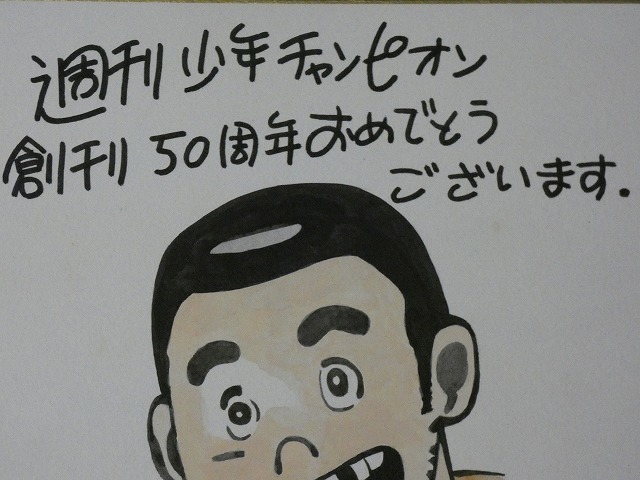 週刊少年チャンピオン
創刊50周年おめでとう
ございます.